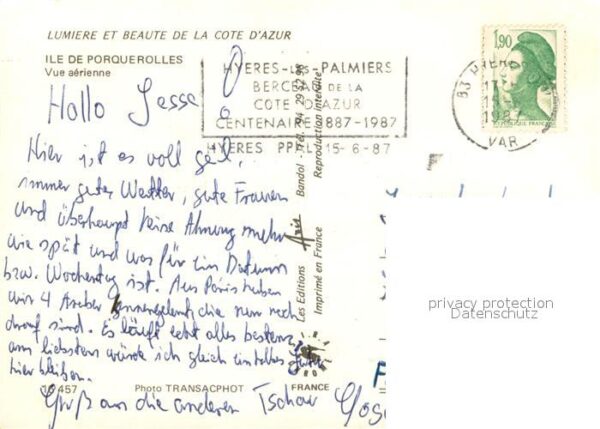 LUMIERE ET BEAUTE DE LA COTE D'AZUR
ILE DE PORQUEROLLES
Vue aérienne
HYERES-LES-PALMIERS
BERCEAU DE LA
COTE D'AZUR
CENTENAIRE 1887-1987
HYERES PPAL 15-6-87
1,90
REPUBLIQUE FRANÇAISE
83 HYERES
1987
VAR
Hallo Jesse
Hier ist es voll geil,
immer gutes Wetter, gute Frauen
und überhaupt keine Ahnung mehr
wie spät und was für ein Datum
bzw. Wochentag ist. Aus Paris haben
wir 4 kennengelernt, die nun noch
drauf sind. Es läuft echt alles bestens,
am liebsten würde ich gleich ein
hier bleiben.
Gruß an die anderen Tschau
Les Editions Bandol - Tél. 94.29
Imprimé en France Reproduction interdite
457
Photo TRANSACPHOT
FRANCE
privacy protection
Datenschutz